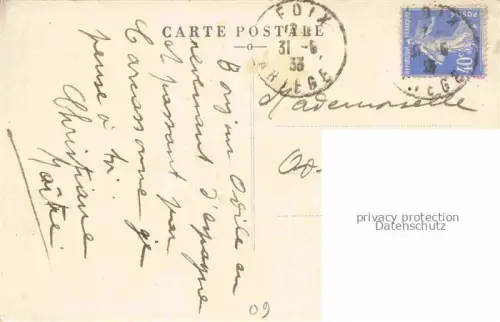 CARTE POSTALE
FOIX
31-5
33
ARIEGE
POSTES
40c
Mademoiselle
Od
Bonjour Odile en
revenant d'espagne
et passant par
Carcassonne je
pense à toi.
Christiane
privacy protection
Datenschutz
09